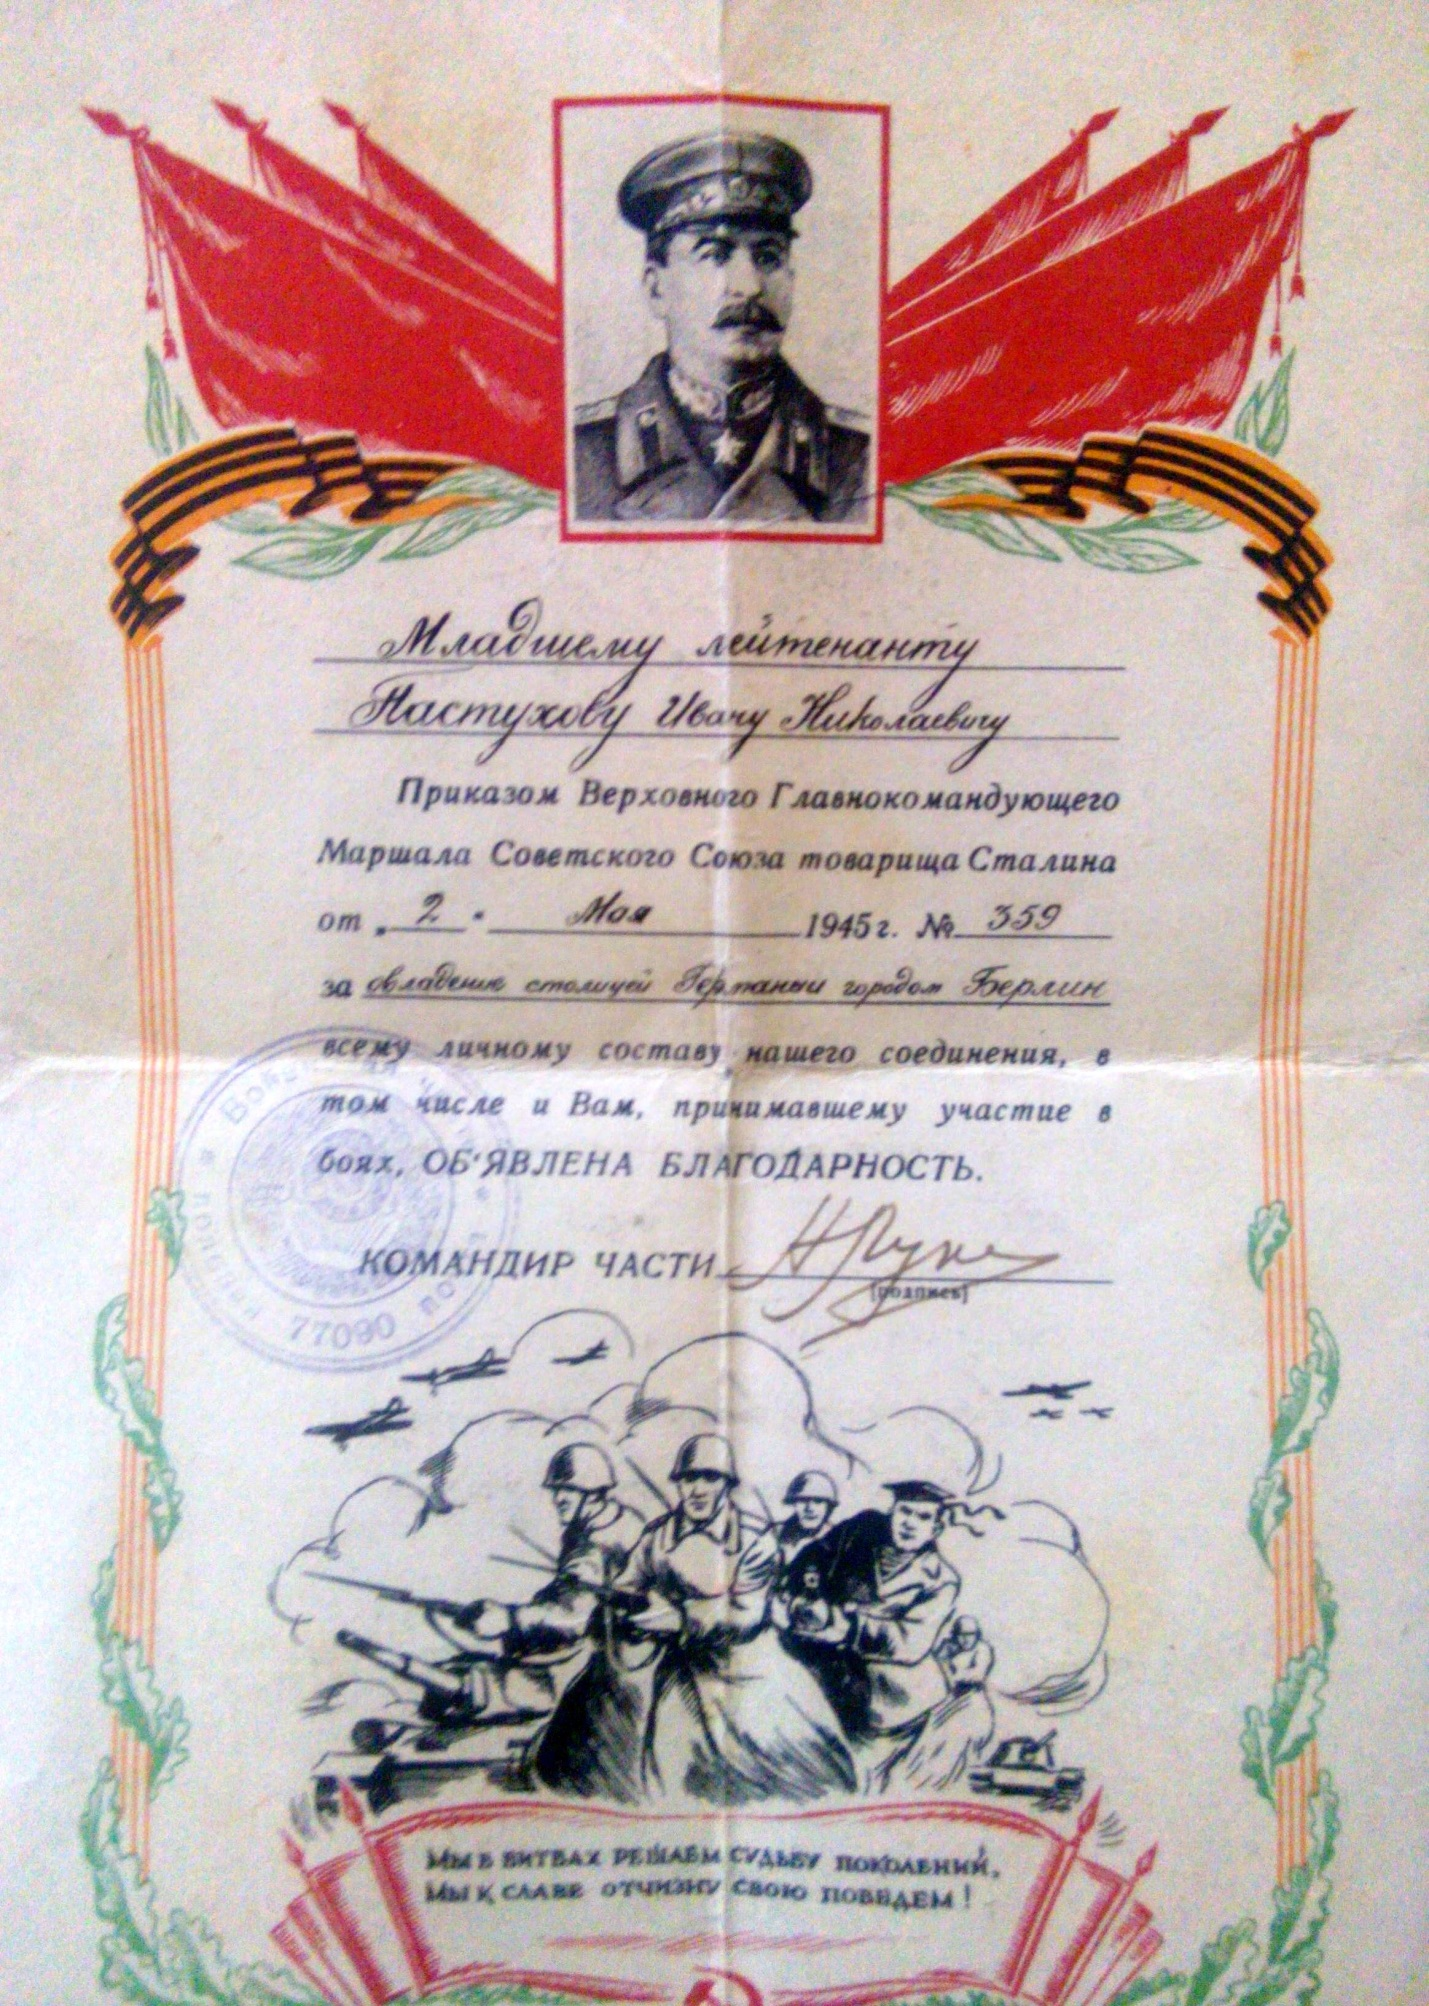 Младшему лейтенанту
Пастухову Ивану Николаевичу
Приказом Верховного Главнокомандующего
Маршала Советского Союза товарища Сталина
от „ 2 " Мая 1945 г. № 359
за овладение столицей Германии городом Берлин
всему личному составу нашего соединения, в
том числе и Вам, принимавшему участие в
боях, ОБ'ЯВЛЕНА БЛАГОДАРНОСТЬ.
КОМАНДИР ЧАСТИ
(подпись)
77090
МЫ В БИТВАХ РЕШАЕМ СУДЬБУ ПОКОЛЕНИЙ,
МЫ К СЛАВЕ ОТЧИЗНУ СВОЮ ПОВЕДЕМ!